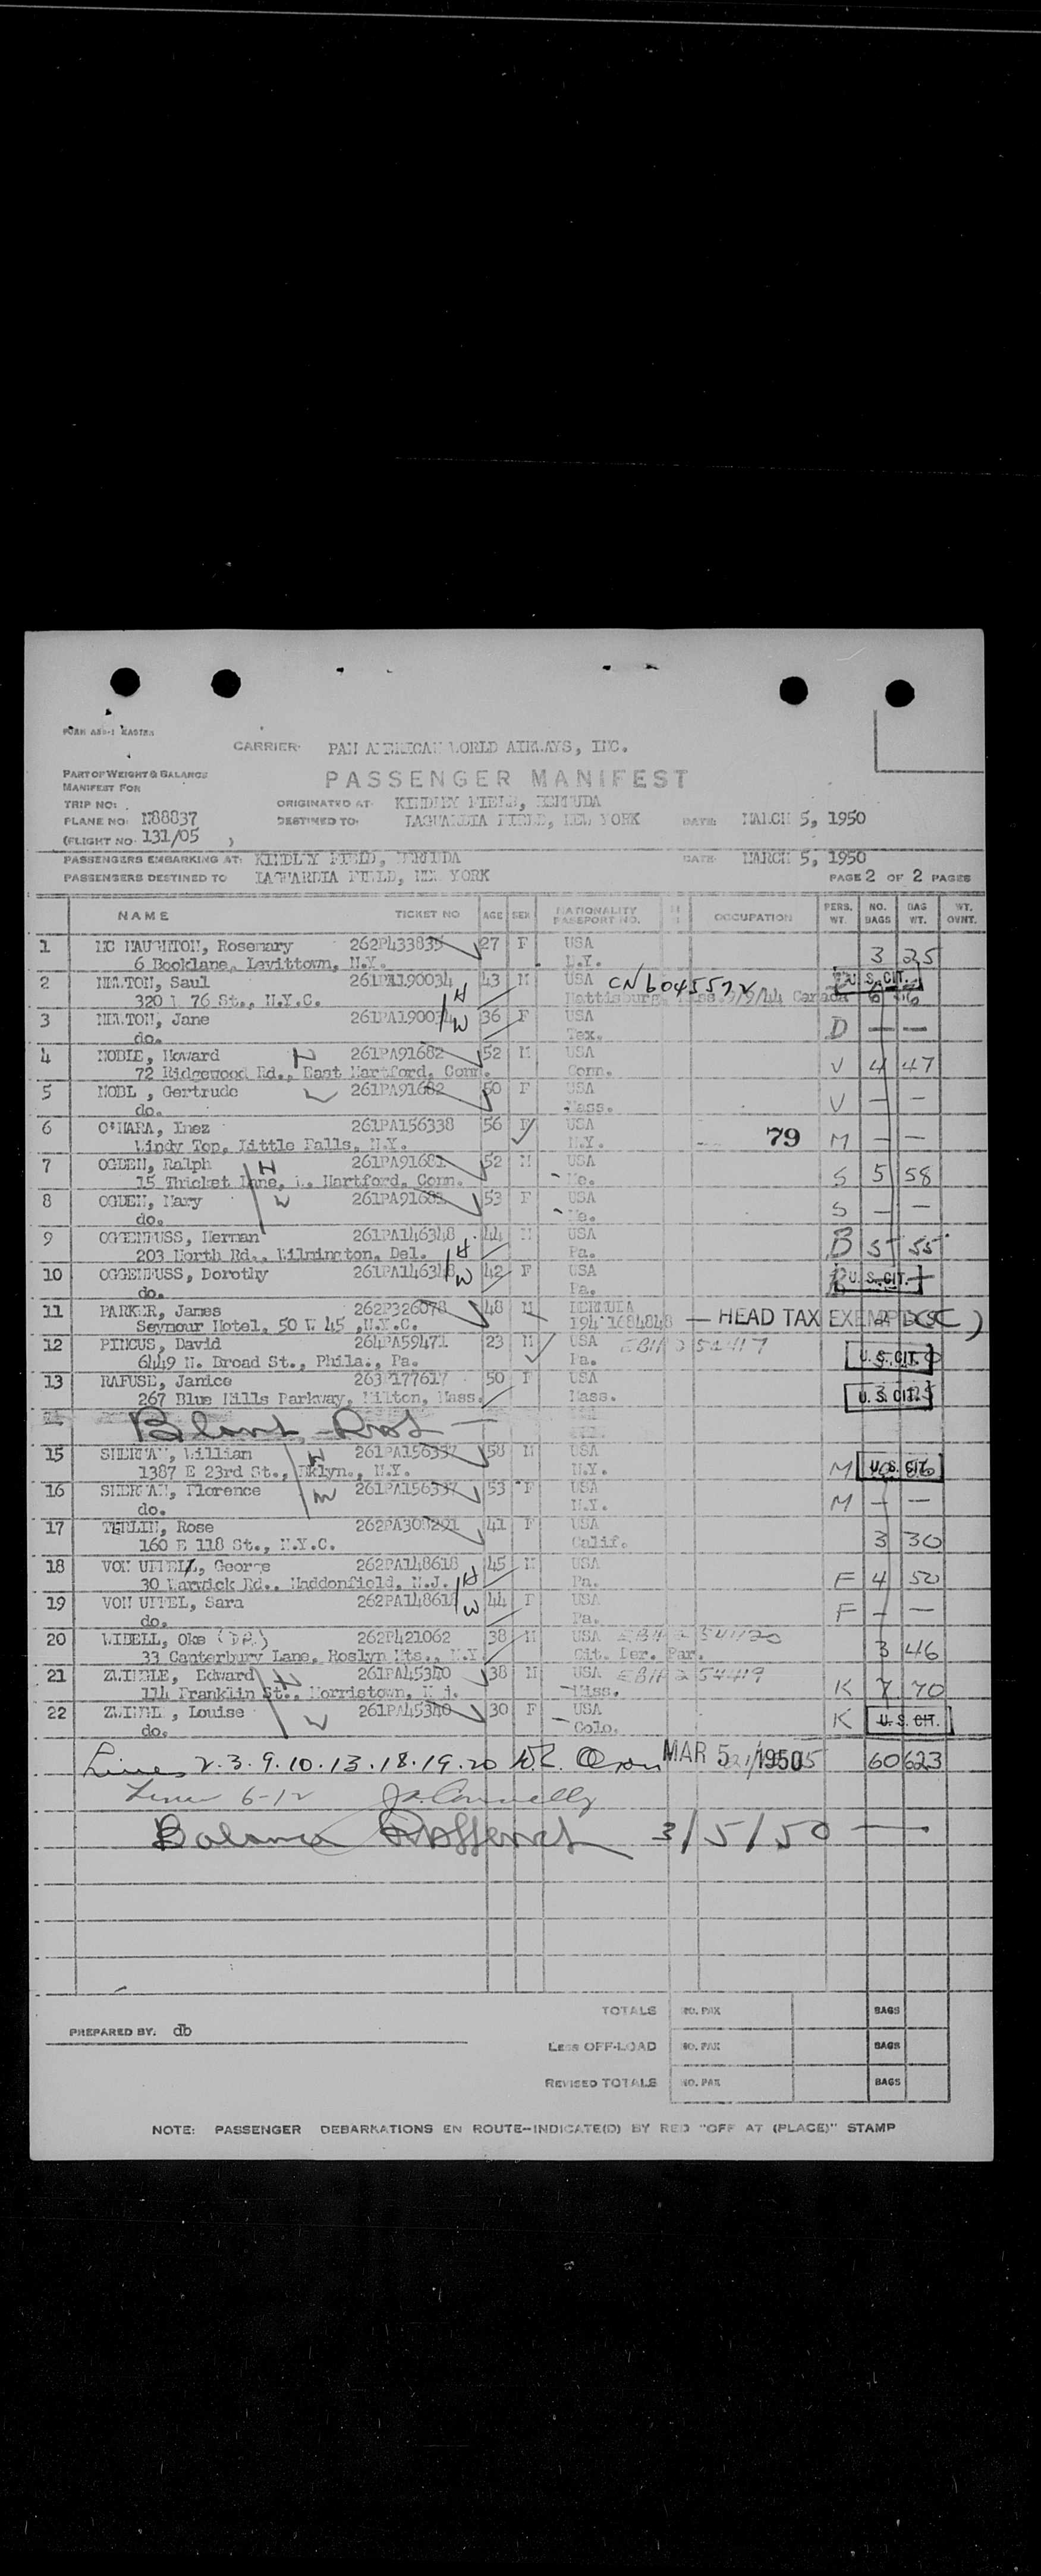 CARRIER: PAN AMERICAN WORLD AIRWAYS, INC.
PART OF WEIGHT & BALANCE
MANIFEST FOR
PASSENGER MANIFEST
TRIP NO:
ORIGINATED AT: KINDLEY FIELD, BERMUDA
PLANE NO: N88837
DESTINED TO: LAGUARDIA FIELD, NEW YORK DATE: MARCH 5, 1950
(FLIGHT NO. 131/05 )
PASSENGERS EMBARKING AT: KINDLEY FIELD, BERMUDA DATE MARCH 5, 1950
PASSENGERS DESTINED TO LAGUARDIA FIELD, NEW YORK PAGE 2 OF 2 PAGES
NAME TICKET NO AGE SEX NATIONALITY PASSPORT NO. OCCUPATION PERS. WT. NO. BAGS BAG WT. WT. OVNT.
1 MC NAUGHTON, Rosemary 262P433835 27 F USA
6 Booklane, Levittown, N.Y. N.Y. 3 25
2 Saul 261PA190034 43 M USA CN 6045572 U. S. CIT.
320 76 St., N.Y.C. Hattisburg, Miss. 9/9/44 Canada
3 Jane 36 F USA
do. Tex. D — —
4 NOBLE, Howard H 261PA91682 52 M USA
72 Ridgewood Rd., East Hartford, Conn. Conn. V 4 47
5 NOBL , Gertrude W 261PA91682 50 F USA
do. Mass. V — —
6 O'HARA, Inez 261PA156338 56 F USA
Windy Top, Little Falls, N.Y. N.Y. 79 M — —
7 OGDEN, Ralph H 261PA91681 52 M USA
15 Thicket Lane, W. Hartford, Conn. Mo. S 5 58
8 OGDEN, Mary W 53 F USA
do. Mo. S — —
9 OGGENFUSS, Herman 261PA146348 44 M USA
203 North Rd., Wilmington, Del. H Pa. B 5 55
10 OGGENFUSS, Dorothy 261PA146348 W 42 F USA U. S. CIT.
do. Pa.
11 PARKER, James 262P326078 48 M BERMUDA
Seymour Hotel, 50 W 45 ,N.Y.C. — HEAD TAX EXEMPT
12 PINCUS, David 264PA59471 23 M USA
6449 N. Broad St., Phila., Pa. Pa. U. S. CIT.
13 RAFUSE, Janice 263P177617 50 F USA
267 Blue Hills Parkway, Milton, Mass. Mass. U. S. CIT.
15 SHERMAN, William H 261PA156337 58 M USA
1387 E 23rd St., Bklyn., N.Y. N.Y. M U. S. CIT.
16 SHERMAN, Florence 261PA156337 53 F USA
do. N.Y. M — —
17 TERLIN, Rose 41 F USA
160 E 118 St., N.Y.C. Calif. 3 30
18 George 262PA148618 45 M USA
30 Warwick Rd., Haddonfield, N.J. H Pa. F 4 50
19 Sara 262PA148618 W 44 F USA
do. Pa. F — —
20 262P421062 38 M USA
33 Canterbury Lane, Roslyn Hts., N.Y. Cit. Der. Par. 3 46
21 Edward H 261PA45340 38 M USA
114 Franklin St., Morristown, N.j. Miss. K 7 70
22 Louise W 261PA45340 30 F USA
do. Colo. K U. S. CIT.
Lines 2.3.9.10.13.18.19.20 MAR 5 1950 60 623
Lines 6-12
Balance 3/5/50
TOTALS NO. PAX BAGS
PREPARED BY. db
Less OFF-LOAD NO. PAX BAGS
REVISED TOTALS NO. PAX BAGS
NOTE: PASSENGER DEBARKATIONS EN ROUTE--INDICATE(D) BY RED "OFF AT (PLACE)" STAMP